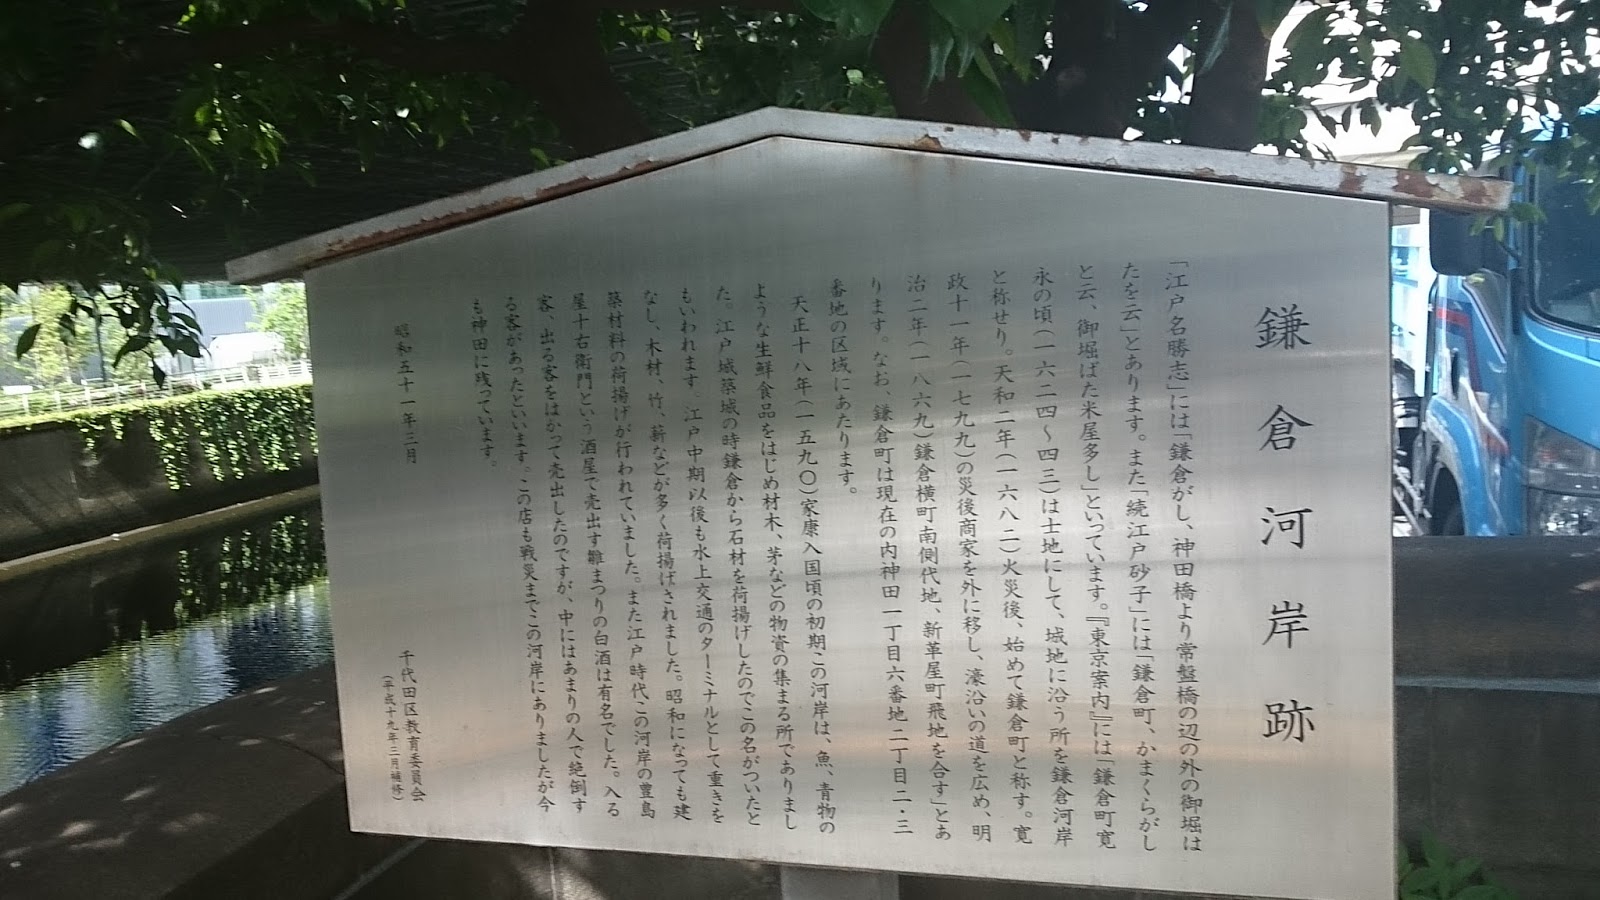 鎌倉河岸跡
「江戸名勝志」には「鎌倉がし、神田橋より常盤橋の辺の外の御堀は
たを云」とあります。また「続江戸砂子」には「鎌倉町、かまくらがし
と云、御堀ばた米屋多し」といっています。『東京案内』には「鎌倉町寛
永の頃(一六二四〜四三)は士地にして、城地に沿う所を鎌倉河岸
と称せり。天和二年(一六八二)火災後、始めて鎌倉町と称す。寛
政十一年(一七九九)の災後商家を外に移し、濠沿いの道を広め、明
治二年(一八六九)鎌倉横町南側代地、新革屋町飛地を合す」とあ
ります。なお、鎌倉町は現在の内神田一丁目六番地二丁目二・三
番地の区域にあたります。
天正十八年(一五九〇)家康入国頃の初期この河岸は、魚、青物の
ような生鮮食品をはじめ材木、茅などの物資の集まる所でありまし
た。江戸城築城の時鎌倉から石材を荷揚げしたのでこの名がついたと
もいわれます。江戸中期以後も水上交通のターミナルとして重きを
なし、木材、竹、薪などが多く荷揚げされました。昭和になっても建
築材料の荷揚げが行われていました。また江戸時代この河岸の豊島
屋十右衛門という酒屋で売出す雛まつりの白酒は有名でした。入る
客、出る客をはかって売出したのですが、中にはあまりの人で絶倒す
る客があったといいます。この店も戦災までこの河岸にありましたが今
も神田に残っています。
昭和五十一年三月
千代田区教育委員会
(平成十九年三月補修)